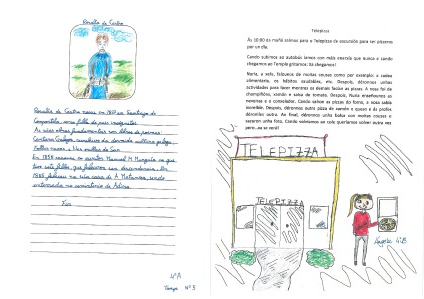 Rosalía de Castro
Rosalía de Castro naceu en 1837 en Santiago de
Compostela, era filla de pais incógnitos.
As súas obras fundamentais son libros de poemas:
Cantares Gallegos,
Follas novas, e Nas orillas do Sar.
En 1858 casouse co escritor Manuel M. Murguía co que
tivo sete fillos, que faleceron sen descendencia. En
1885 faleceu na súa casa de A Matanza, sendo
enterrada no cemiterio de Adina.
Fin
4ºA
Nº 3
Telepizza
Ás 10:00 da mañá saímos para o Telepizza de excursión para ser pizzeros
por un día.
Cando subimos ao autobús íamos con máis enerxía que nunca e cando
chegamos ao Temple gritamos: Xa chegamos!
Nuria, a xefa, falounos de moitas cousas como por exemplo: a cadea
alimentaria, os hábitos saudables, etc. Despois, déronnos unhas
actividades para facer mentres os demais facían as pizzas. A nosa foi de
champiñóns, xamón e salsa de tomate. Despois, Nuria ensinounos as
neveiras e o conxelador. Cando saíron as pizzas do forno, a nosa sabía
incrible. Despois, déronnos outra pizza de xamón e queixo e ás profes
déronlles outra. Ao final, déronnos unha bolsa con moitas cousas e
sacaron unha foto. Cando volvemos ao cole queríamos volver outra vez
pero…xa se verá!
TELEPIZZA
TELEPIZZA
Ángela 4ºB